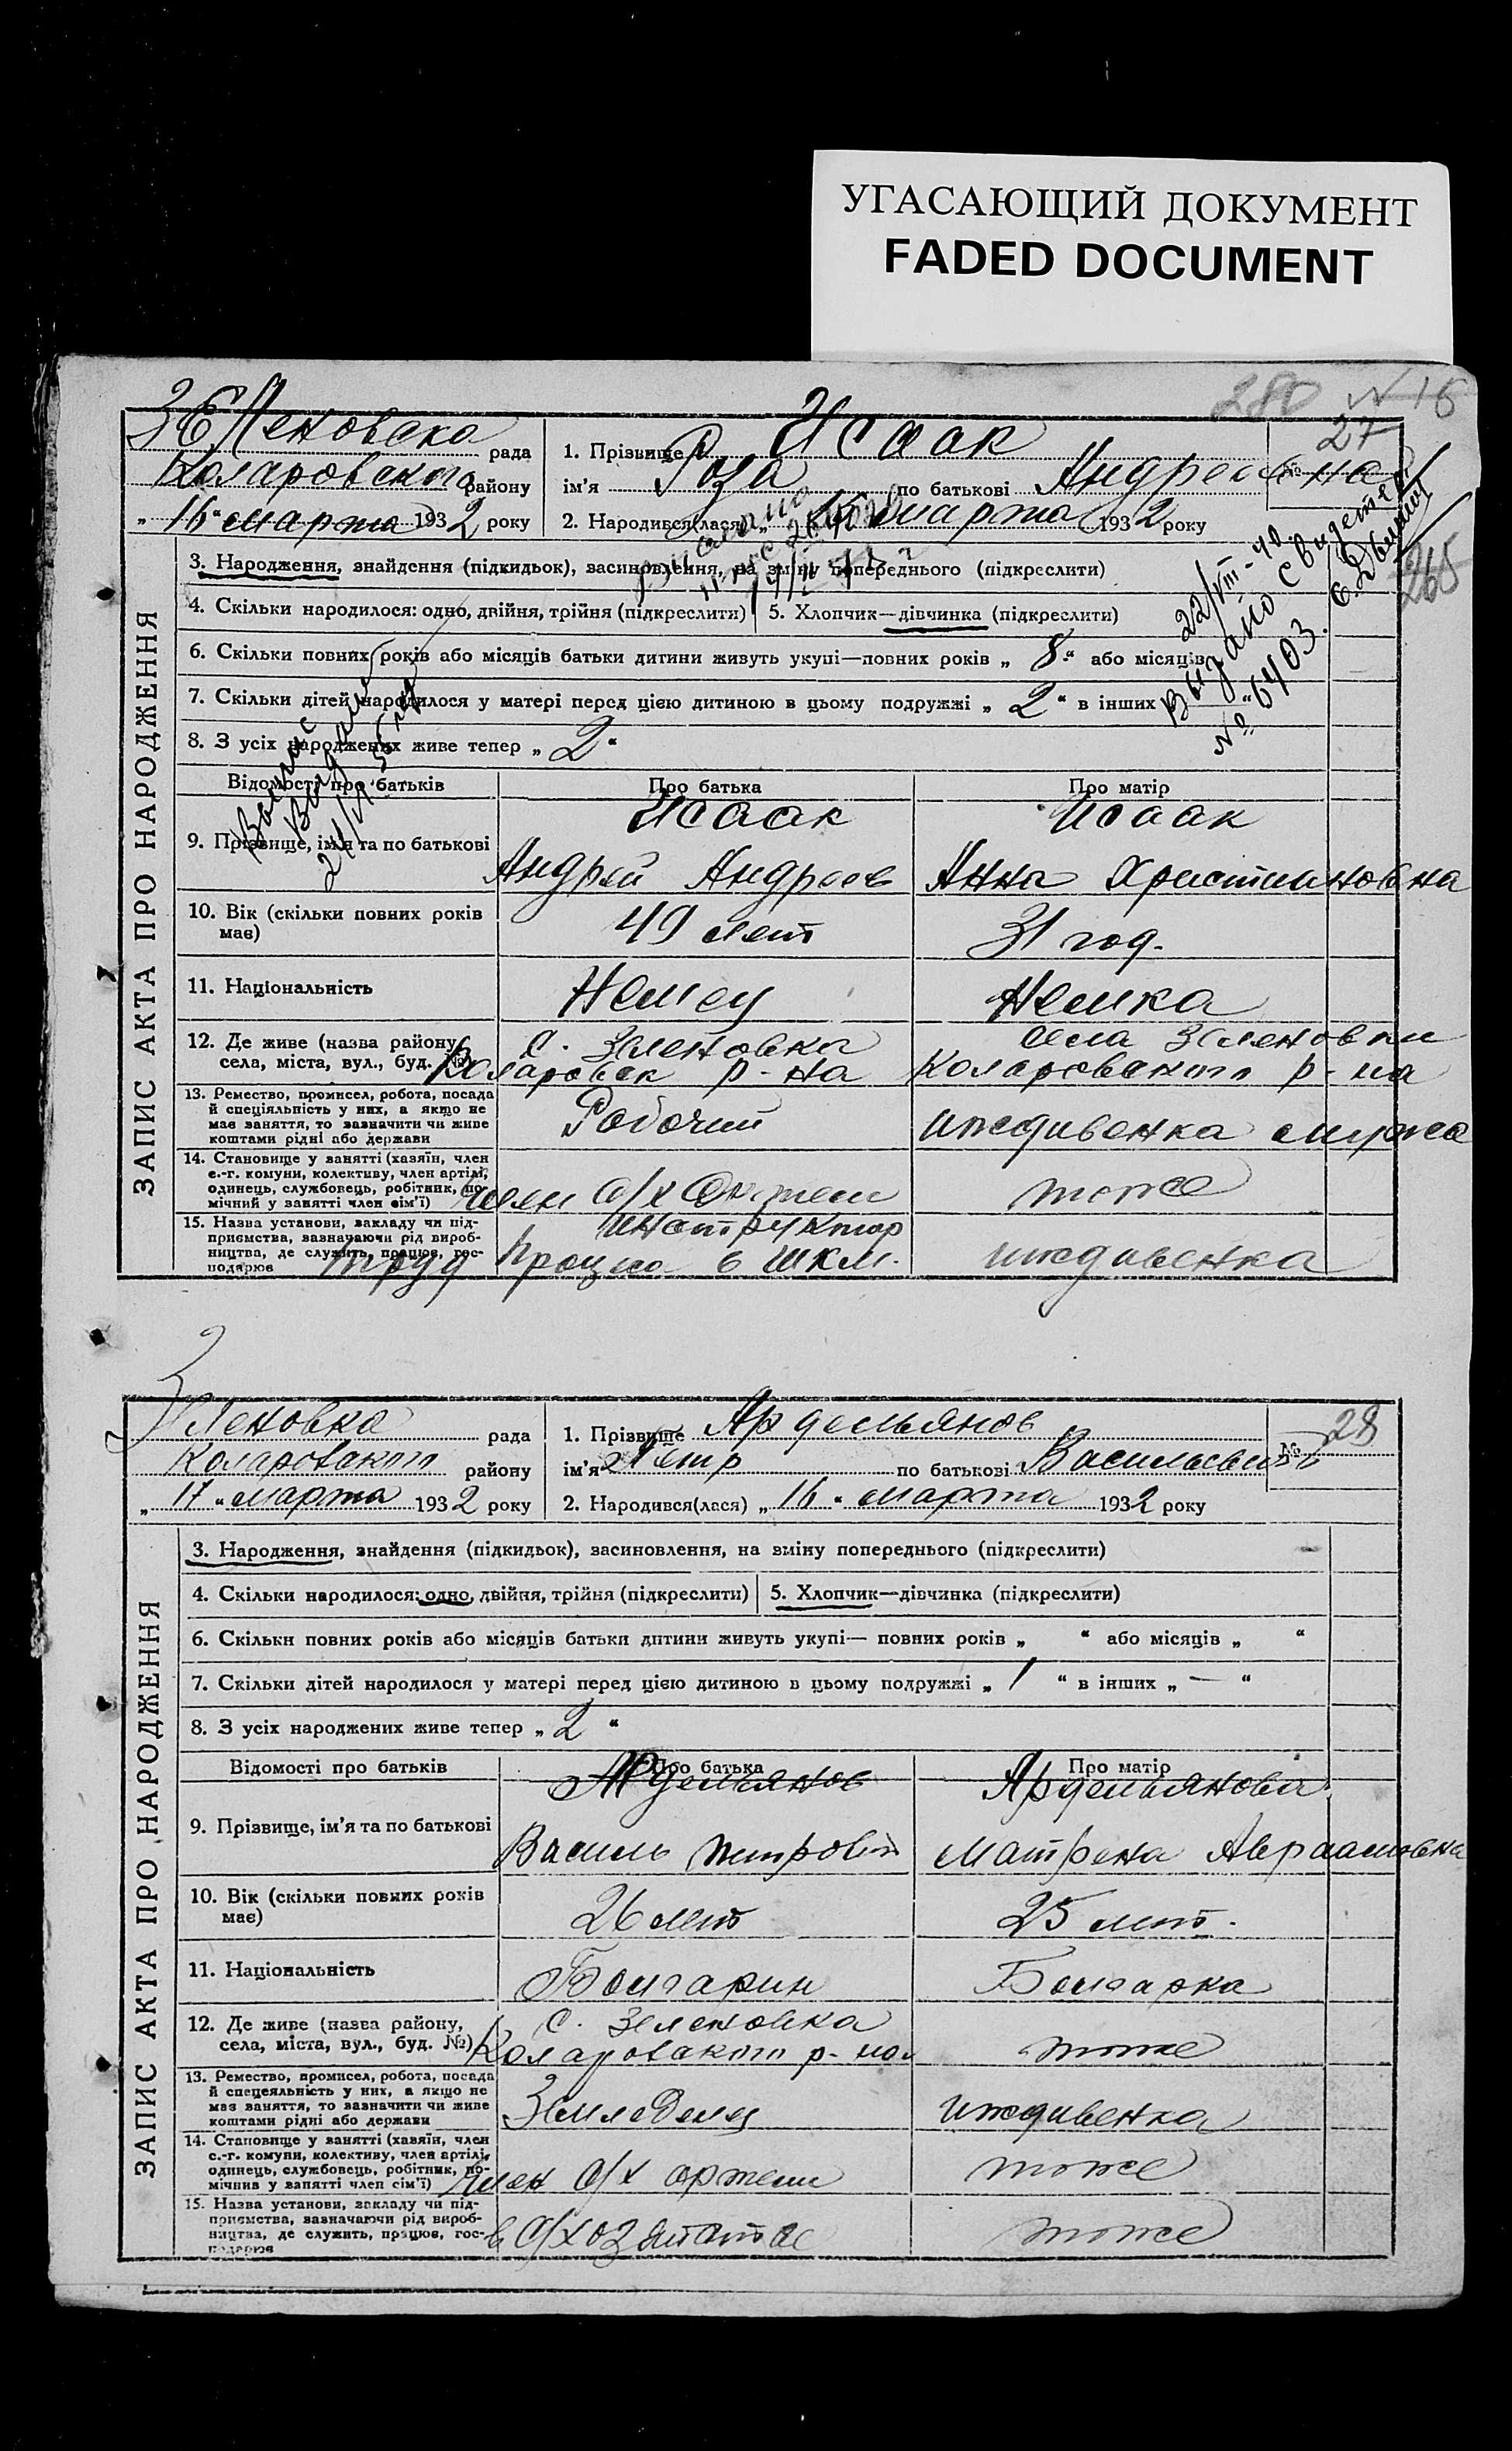 УГАСАЮЩИЙ ДОКУМЕНТ
FADED DOCUMENT
280 N 16
ЗАПИС АКТА ПРО НАРОДЖЕННЯ
Зеленовска рада
Коларовского району
„ 16 “ марта 1932 року
1. Прізвище Исаак
ім'я Роза по батькові Андреевна
2. Народився(лася) „ 15 “ марта 1932 року
№ 27
265
3. Народження, знайдення (підкидьок), засиновлення, на зміну попереднього (підкреслити)
4. Скільки народилося: одно, двійня, трійня (підкреслити) 5. Хлопчик—дівчинка (підкреслити)
22/VIII-40
Выдано свидетел
№ 6403.
6. Скільки повних років або місяців батьки дитини живуть укупі—повних років „ 8 “ або місяців
7. Скільки дітей народилося у матері перед цією дитиною в цьому подружжі „ 2 “ в інших
8. З усіх народжених живе тепер „ 2 “
Відомості про батьків Про батька Про матір
9. Прізвище, ім'я та по батькові
Исаак Исаак
Андрей Андреев Анна Христиановна
10. Вік (скільки повних років має) 49 лет 31 год.
11. Національність Немец Немка
12. Де живе (назва району, села, міста, вул., буд. №)
с. Зеленовка села Зеленовки
Коларовск р-на Коларовского р-на
13. Ремество, промисел, робота, посада
й спеціяльність у них, а якщо не
має заняття, то зазначити чи живе
коштами рідні або держави
Рабочий иждивенка мужа
14. Становище у занятті (хазяїн, член
с.-г. комуни, колективу, член артілі,
одинець, службовець, робітник, по-
мічний у занятті член сім'ї)
член с/х Артели тоже
15. Назва установи, закладу чи під-
приємства, зазначаючи рід вироб-
ництва, де служить, працює, гос-
подарює
инструктор
труд процеса в ШКМ. иждивенка
ЗАПИС АКТА ПРО НАРОДЖЕННЯ
Зеленовка рада
Коларовского району
„ 17 “ марта 1932 року
1. Прізвище Ардельянов
ім'я Петр по батькові Васильевич
2. Народився(лася) „ 16 “ марта 1932 року
№ 28
3. Народження, знайдення (підкидьок), засиновлення, на зміну попереднього (підкреслити)
4. Скільки народилося: одно, двійня, трійня (підкреслити) 5. Хлопчик—дівчинка (підкреслити)
6. Скільки повних років або місяців батьки дитини живуть укупі— повних років „ “ або місяців „ “
7. Скільки дітей народилося у матері перед цією дитиною в цьому подружжі „ 1 “ в інших „ — “
8. З усіх народжених живе тепер „ 2 “
Відомості про батьків Про батька Про матір
9. Прізвище, ім'я та по батькові
Ардельянов Ардельянова
Василь Петрович Матрена Авраамовна
10. Вік (скільки повних років має) 26 лет 25 лет.
11. Національність Болгарин Болгарка
12. Де живе (назва району,
села, міста, вул., буд. №)
с. Зеленовка
Коларовского р-на тоже
13. Ремество, промисел, робота, посада
й спецеяльність у них, а якщо не
має заняття, то зазначити чи живе
коштами рідні або держави
Земледелец иждивенка
14. Становище у занятті (хазяїн, член
с.-г. комуни, колективу, член артілі,
одинець, службовець, робітник, по-
мічнив у занятті член сім'ї)
член с/х артели тоже
15. Назва установи, закладу чи під-
приємства, зазначаючи рід вироб-
ництва, де служить, працює, гос-
подарює
тоже